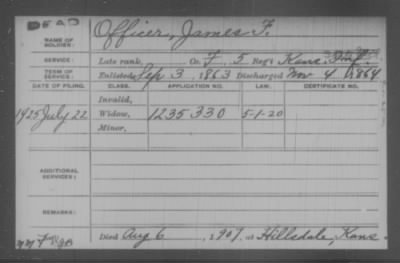 DEAD
NAME OF SOLDIER: Officer, James F.
SERVICE: Late rank, Co. F, 5 Reg't Kans. Inf.
TERM OF SERVICE: Enlisted Sep 3, 1863 Discharged Nov 4, 1864
DATE OF FILING. CLASS. APPLICATION NO. LAW. CERTIFICATE NO.
Invalid,
1925 July 22 Widow, 1235 330 5-1-20
Minor,
ADDITIONAL SERVICES:
REMARKS:
Died Aug 6, 1907, at Hillsdale, Kans